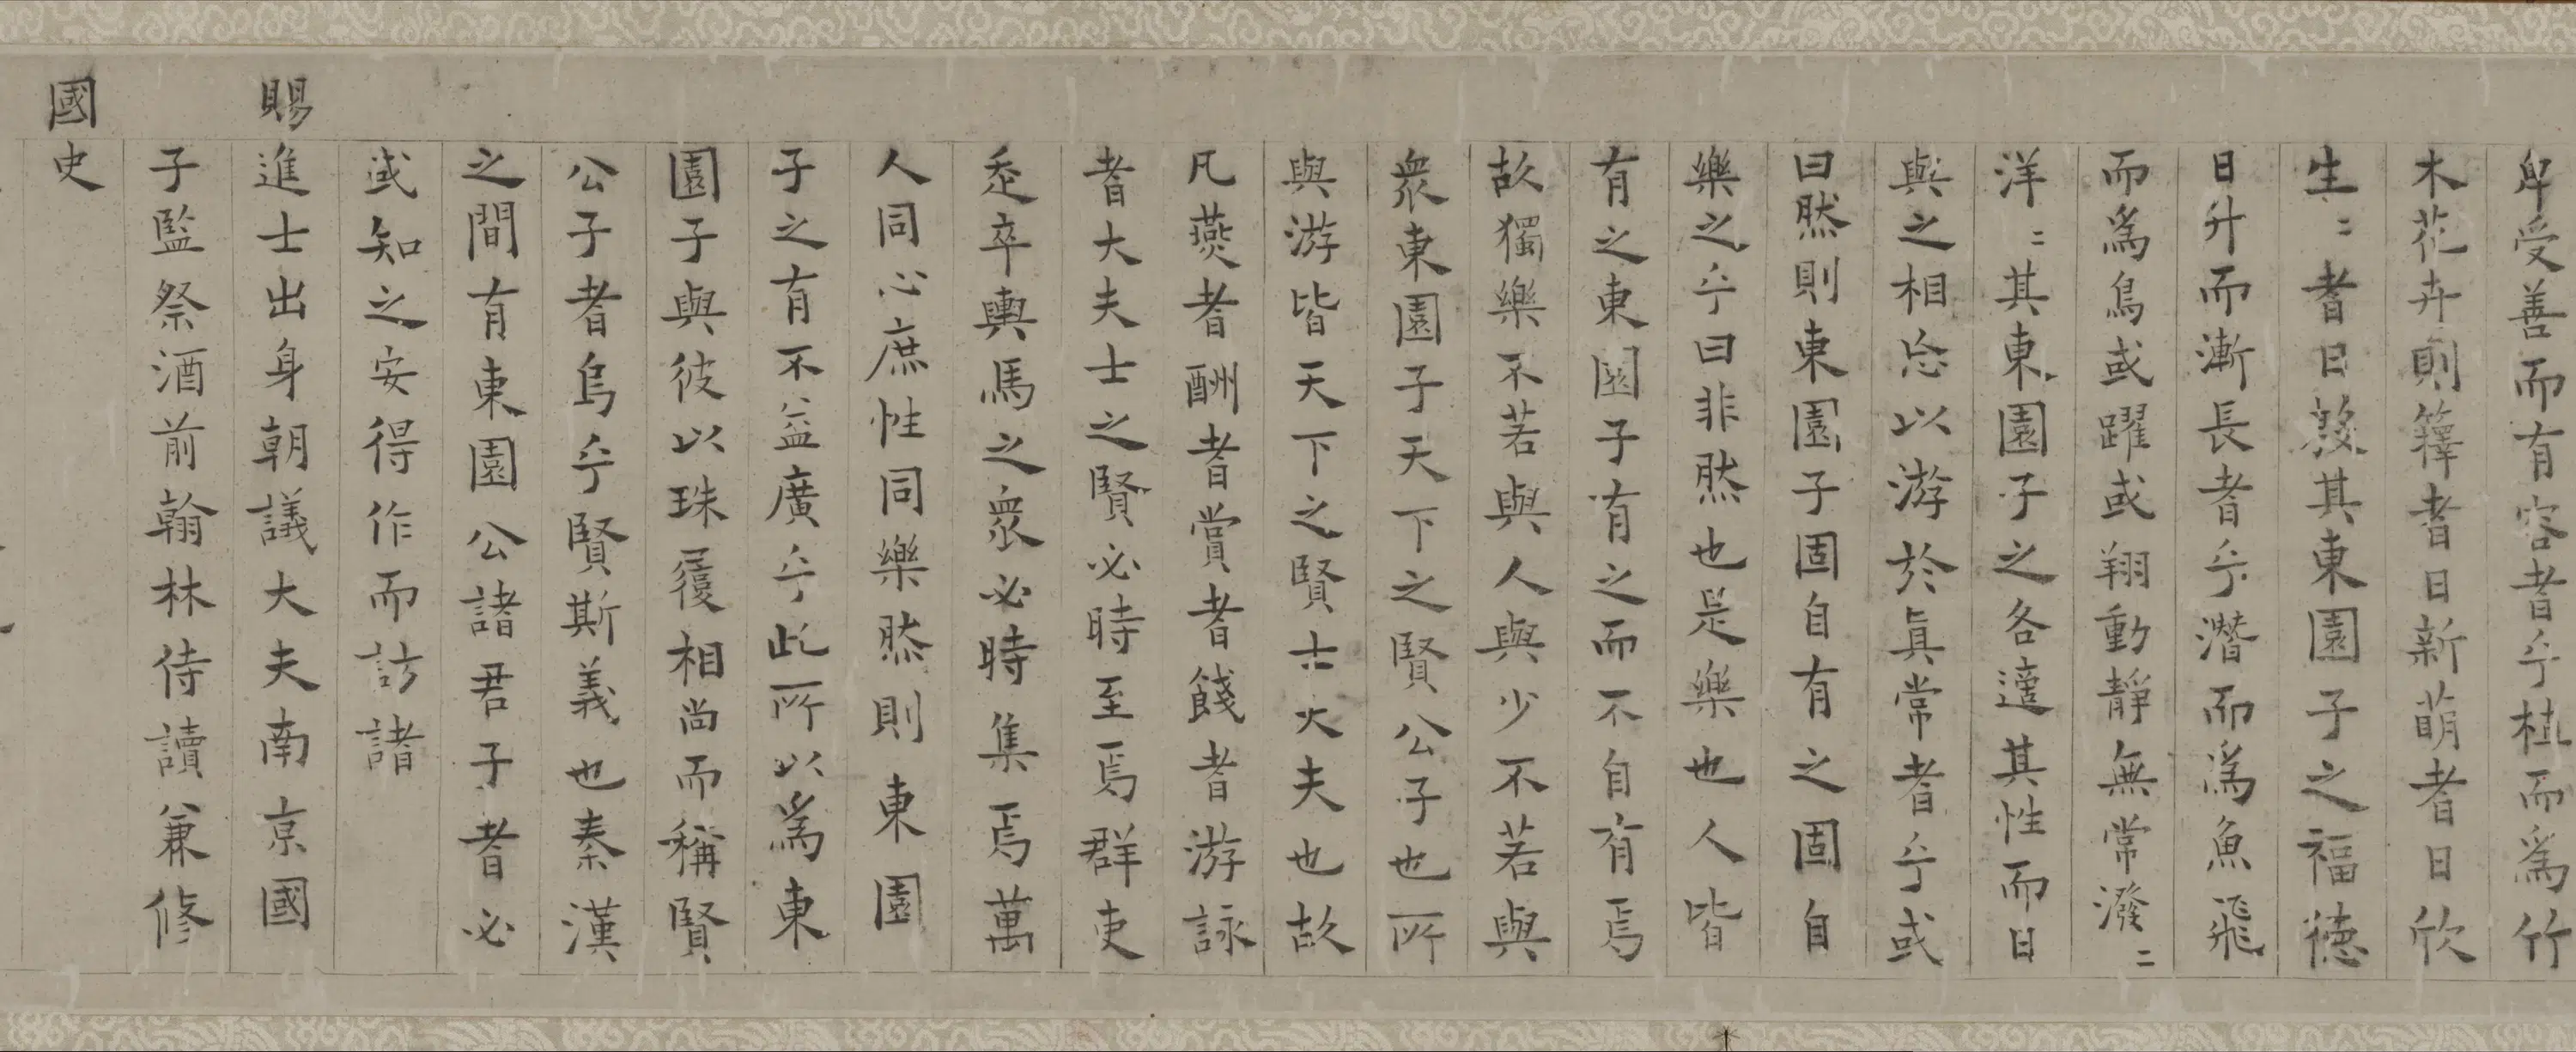 卑受善而有容者乎植而爲竹
木花卉則籜者日新萌者日欣
生〻者日殺其東園子之福德
日升而漸長者乎潛而爲魚飛
而爲鳥或躍或翔動靜無常潑〻
洋〻其東園子之各適其性而日
與之相忘以游於眞常者乎或
曰然則東園子固自有之固自
樂之乎曰非然也是樂也人皆
有之東園子有之而不自有焉
故獨樂不若與人與少不若與
衆東園子天下之賢公子也所
與游皆天下之賢士大夫也故
凡燕者酬者賞者餞者游詠
者大夫士之賢必時至焉群吏
走卒輿馬之衆必時集焉萬
人同心庶性同樂然則東園
子之有不益廣乎此所以爲東
園子與彼以珠履相尚而稱賢
公子者烏乎賢斯義也秦漢
之間有東園公諸君子者必
或知之安得作而訪諸
賜進士出身朝議大夫南京國
子監祭酒前翰林侍讀兼修
國史